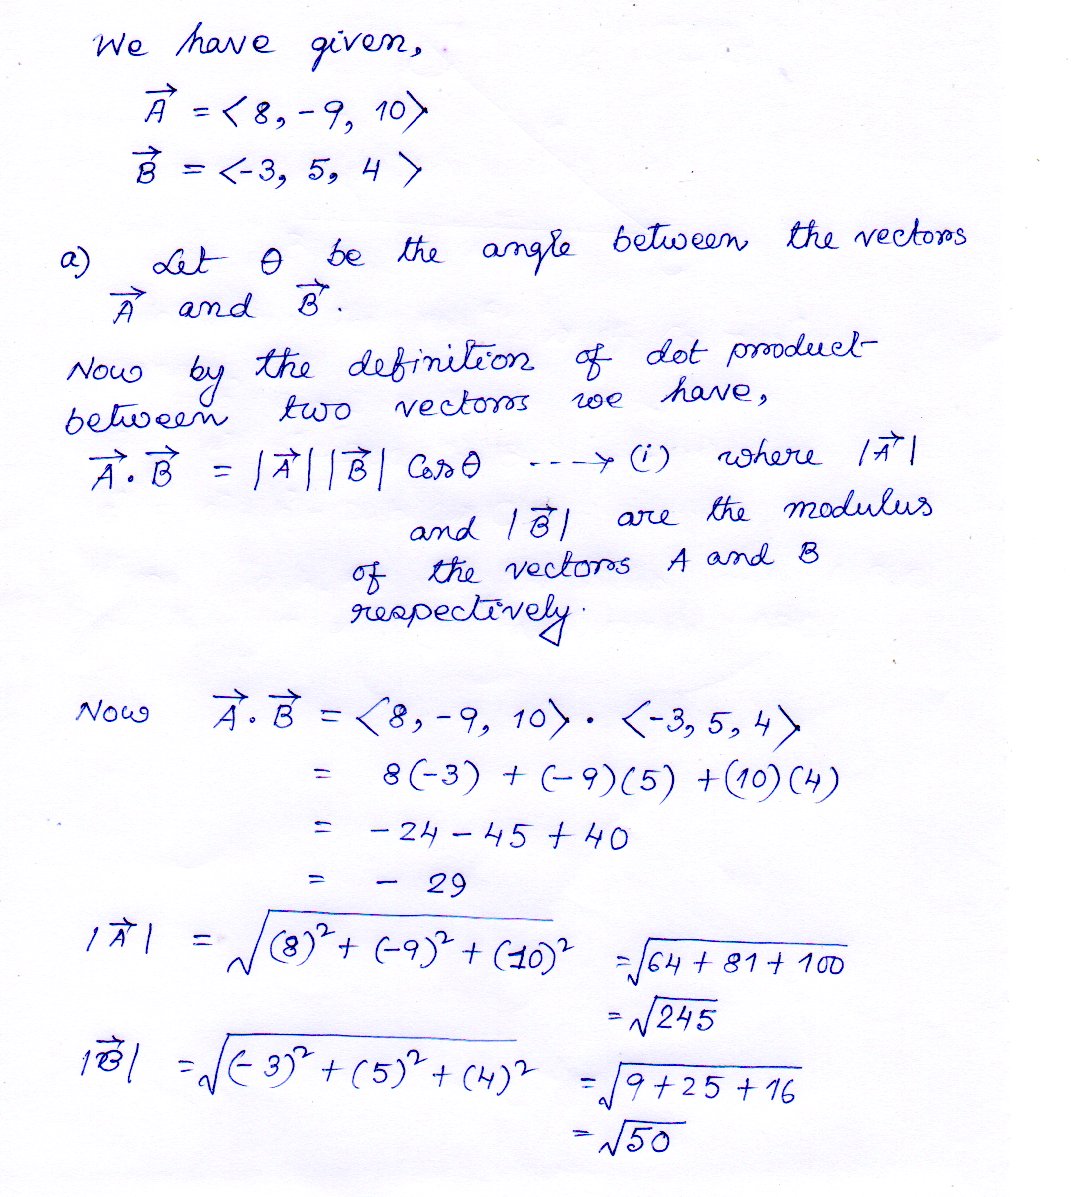 We have given,
A⃗ = <8, -9, 10>
B⃗ = <-3, 5, 4 >
a) Let θ be the angle between the vectors
A⃗ and B⃗.
Now by the definition of dot product
between two vectors we have,
A⃗ . B⃗ = |A⃗| |B⃗| Cos θ ---→ (i) where |A⃗|
and |B⃗| are the modulus
of the vectors A and B
respectively.
Now A⃗ . B⃗ = <8, -9, 10> · <-3, 5, 4>
= 8(-3) + (-9)(5) + (10)(4)
= -24 - 45 + 40
= - 29
|A⃗| = √((8)² + (-9)² + (10)²) = √(64 + 81 + 100)
= √245
|B⃗| = √((-3)² + (5)² + (4)²) = √(9 + 25 + 16)
= √50